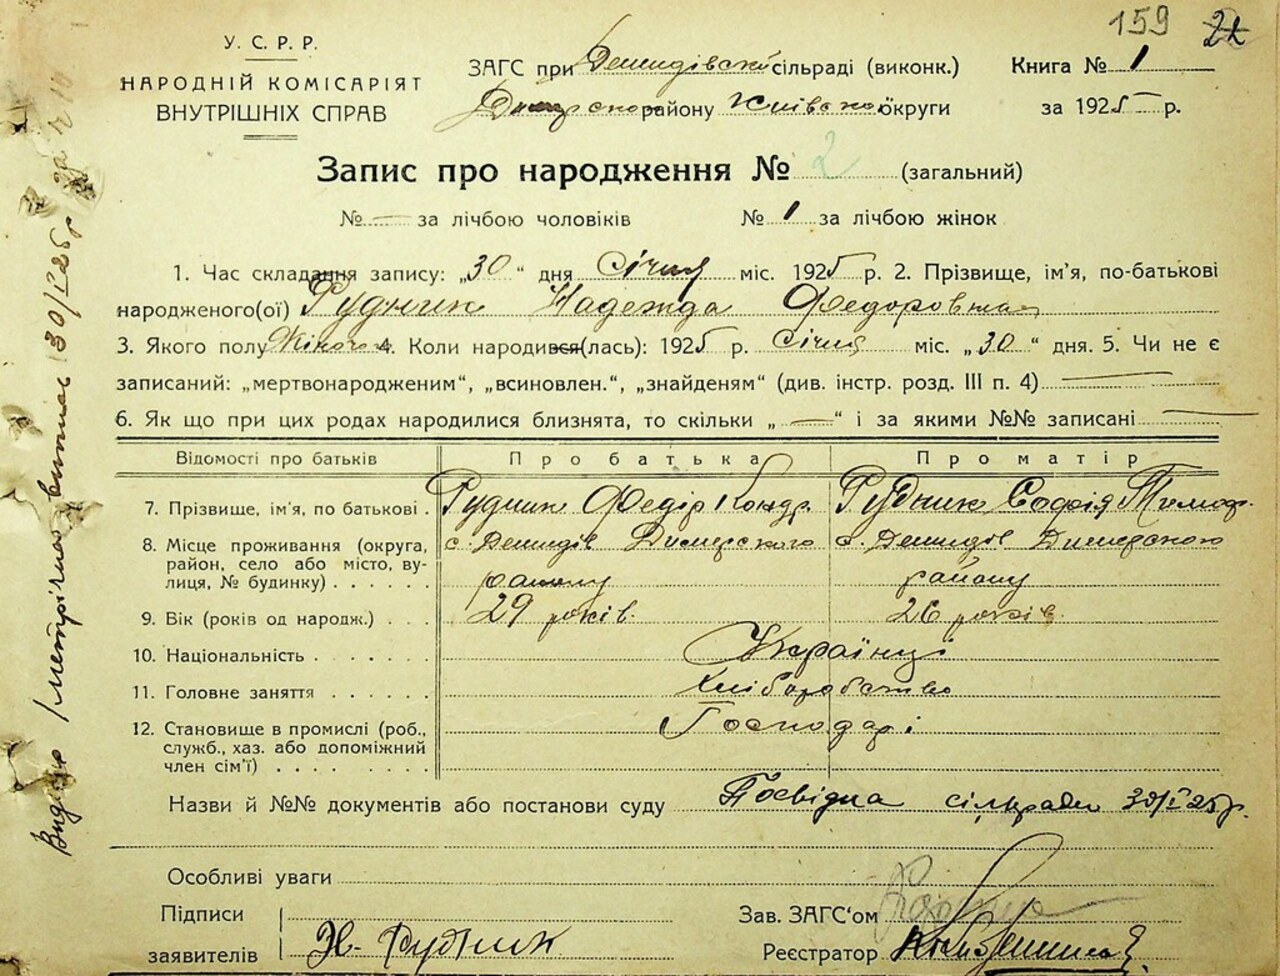 159 21
У. С. Р. Р.
НАРОДНІЙ КОМІСАРІЯТ
ВНУТРІШНІХ СПРАВ
ЗАГС при Демидівській сільраді (виконк.) Книга № 1
Димерского району Київської округи за 1925 р.
Запис про народження № 2 (загальний)
№ — за лічбою чоловіків № 1 за лічбою жінок
1. Час складання запису: „30“ дня Січня міс. 1925 р. 2. Прізвище, ім’я, по-батькові
народженого(ої) Рудник Надежда Федоровна
3. Якого полу Жіночого 4. Коли народився(лась): 1925 р. Січня міс. „30“ дня. 5. Чи не є
записаний: „мертвонародженим“, „всиновлен.“, „знайденям“ (див. інстр. розд. III п. 4) —
6. Як що при цих родах народилися близнята, то скільки „—“ і за якими №№ записані —
Відомості про батьків Про батька Про матір
7. Прізвище, ім’я, по батькові . Рудник Федір Кондр. Рудник Софія Тимоф.
8. Місце проживання (округа, с. Демидів Димерского с. Демидов Димерского
район, село або місто, ву-
лиця, № будинку) . . . . . району району
9. Вік (років од народж.) . . . 29 років. 26 років.
10. Національність . . . . . . . Українці
11. Головне заняття . . . . . . хліборобство
12. Становище в промислі (роб., Господарі
служб., хаз. або допоміжний
член сім’ї) . . . . . . . . .
Назви й №№ документів або постанови суду Посвідка сільради 30/I 25 р.
Особливі уваги
Підписи
заявителів Н. Рудник
Зав. ЗАГС‘ом
Реєстратор
Видано метричну витяг 30/I 25 р. за № 10